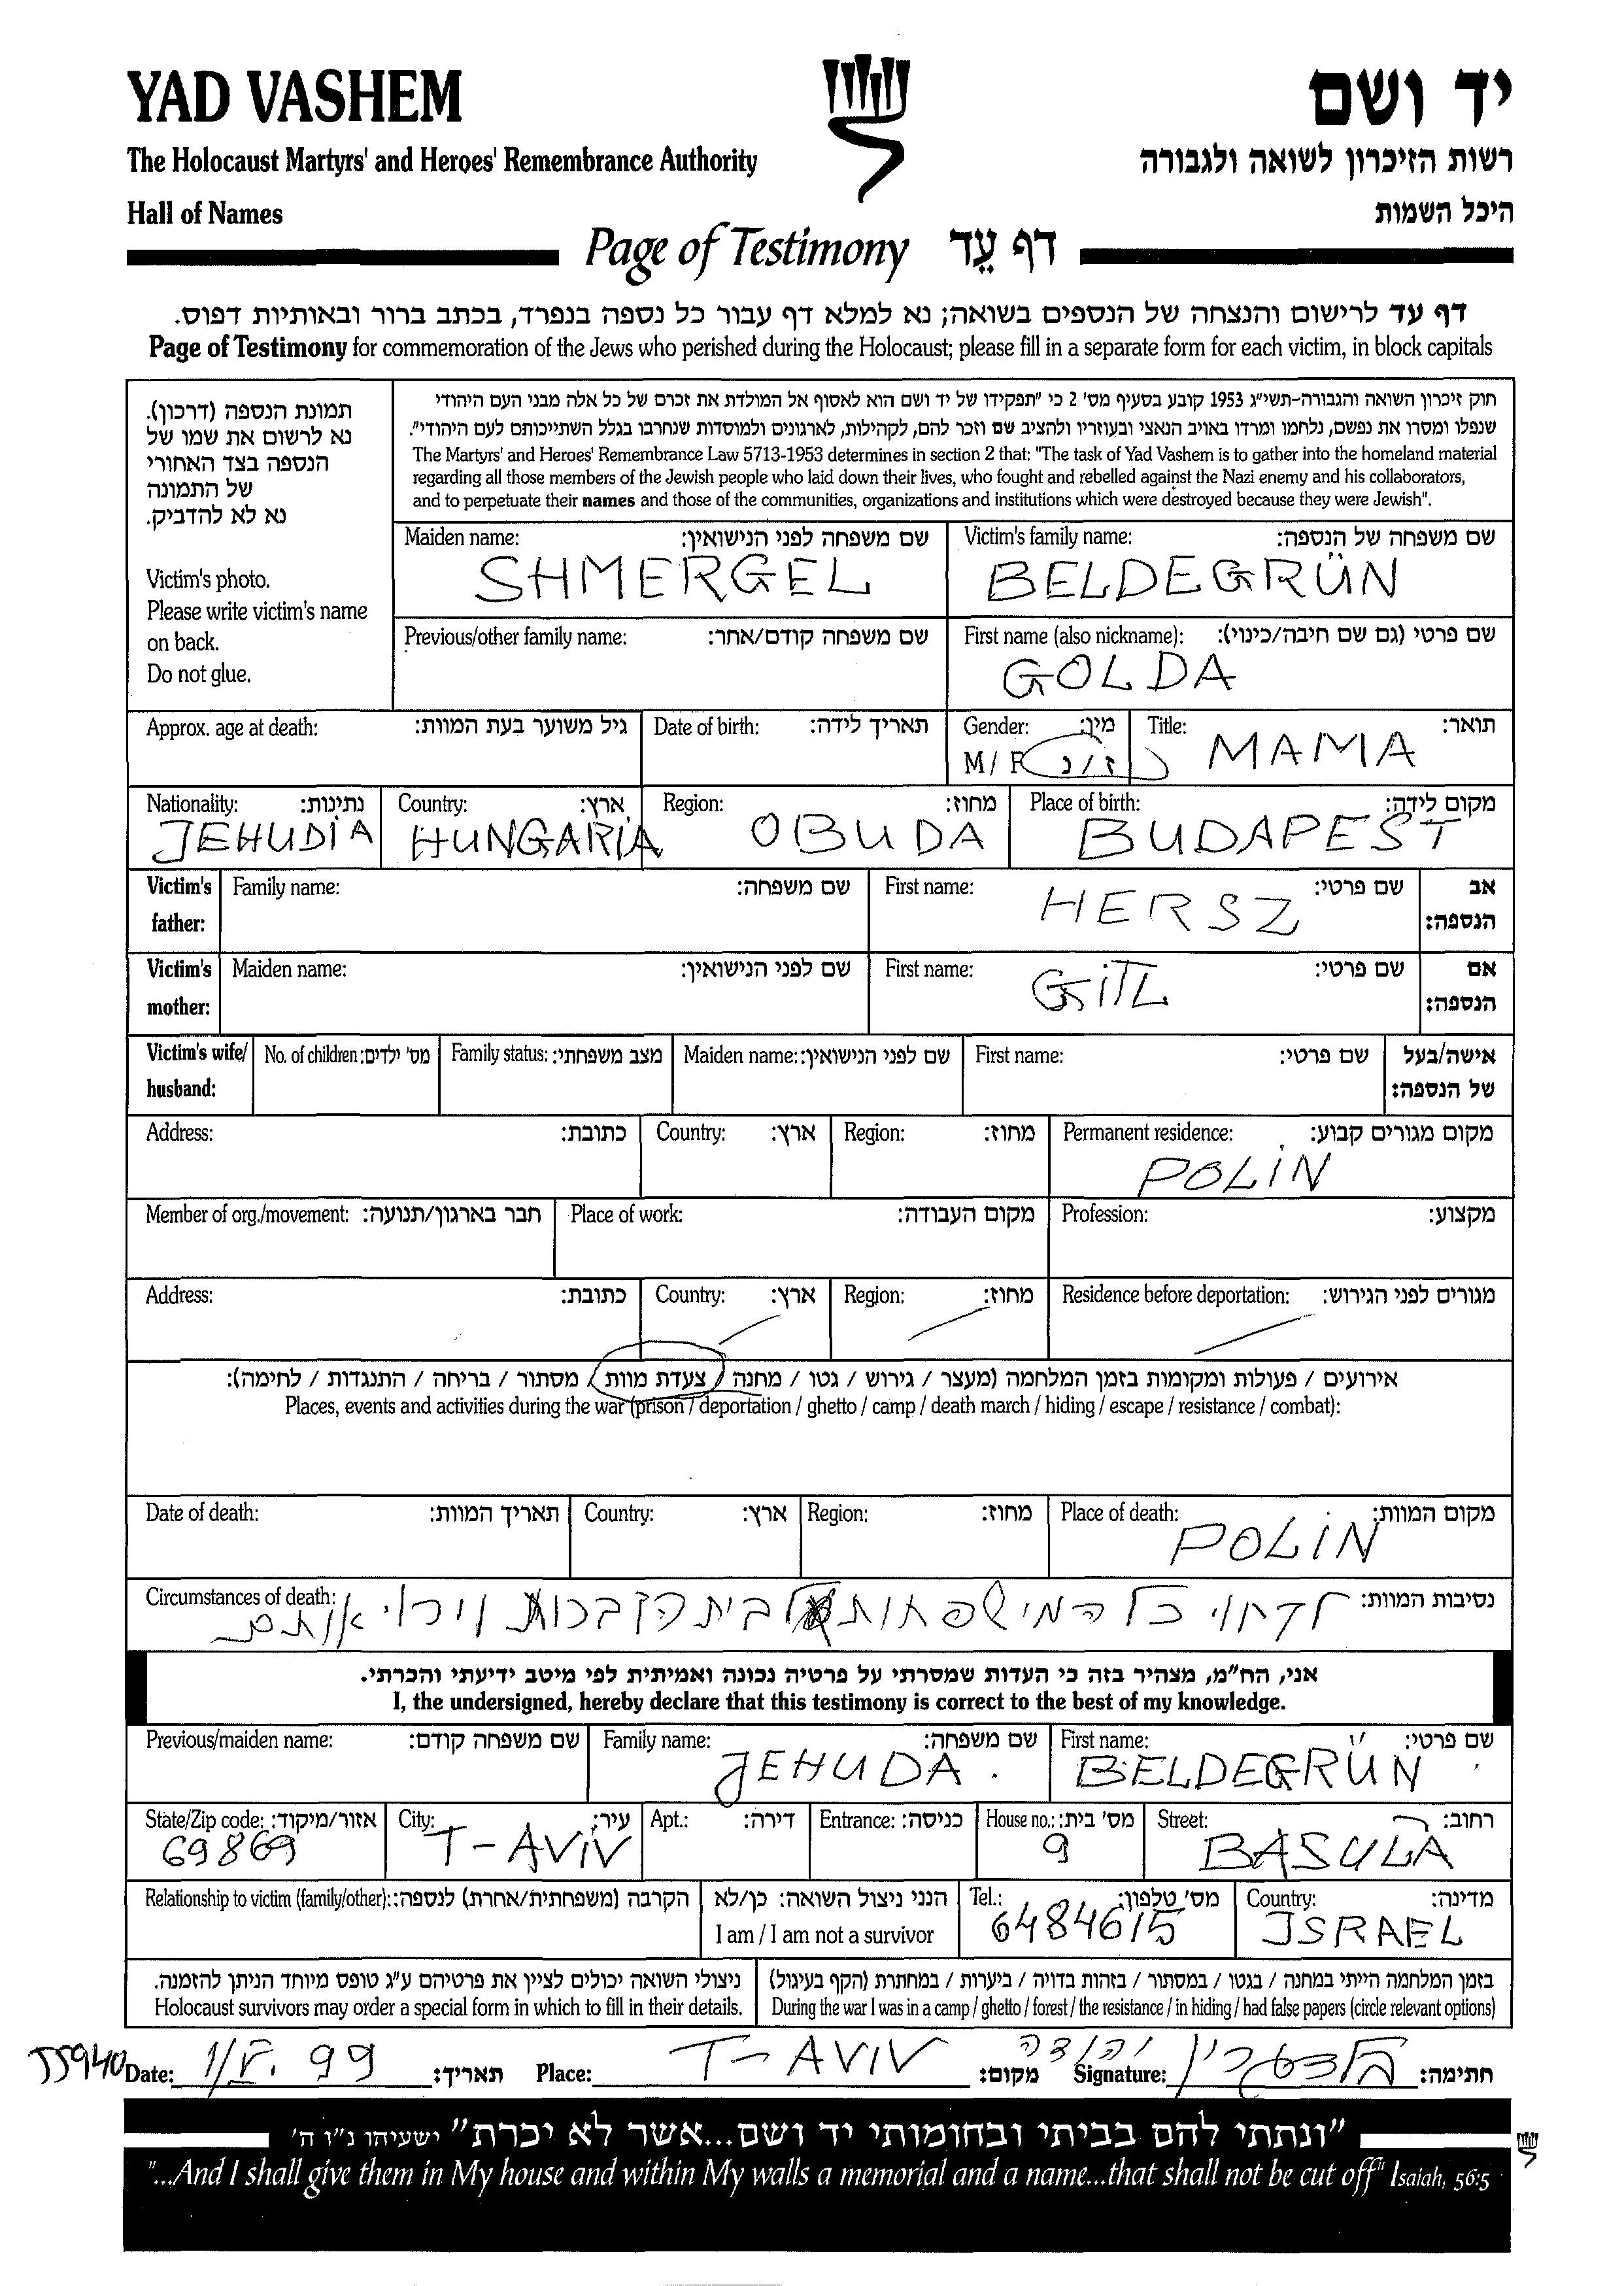 YAD VASHEM
יד ושם
The Holocaust Martyrs' and Heroes' Remembrance Authority
רשות הזיכרון לשואה ולגבורה
Hall of Names
היכל השמות
Page of Testimony דף עֵד
דף עד לרישום והנצחה של הנספים בשואה; נא למלא דף עבור כל נספה בנפרד, בכתב ברור ובאותיות דפוס.
Page of Testimony for commemoration of the Jews who perished during the Holocaust; please fill in a separate form for each victim, in block capitals
תמונת הנספה (דרכון).
נא לרשום את שמו של
הנספה בצד האחורי
של התמונה
נא לא להדביק.
Victim's photo.
Please write victim's name
on back.
Do not glue.
חוק זיכרון השואה והגבורה-תשי"ג 1953 קובע בסעיף מס' 2 כי "תפקידו של יד ושם הוא לאסוף אל המולדת את זכרם של כל אלה מבני העם היהודי
שנפלו ומסרו את נפשם, נלחמו ומרדו באויב הנאצי ובעוזריו ולהציב שם וזכר להם, לקהילות, לארגונים ולמוסדות שנחרבו בגלל השתייכותם לעם היהודי".
The Martyrs' and Heroes' Remembrance Law 5713-1953 determines in section 2 that: "The task of Yad Vashem is to gather into the homeland material
regarding all those members of the Jewish people who laid down their lives, who fought and rebelled against the Nazi enemy and his collaborators,
and to perpetuate their names and those of the communities, organizations and institutions which were destroyed because they were Jewish".
Maiden name: שם משפחה לפני הנישואין:
SHMERGEL
Victim's family name: שם משפחה של הנספה:
BELDEGRÜN
Previous/other family name: שם משפחה קודם/אחר:
First name (also nickname): שם פרטי (גם שם חיבה/כינוי):
GOLDA
Approx. age at death: גיל משוער בעת המוות:
Date of birth: תאריך לידה:
Gender: מין:
M / F ז / נ
Title: תואר:
MAMA
Nationality: נתינות:
JEHUDIA
Country: ארץ:
HUNGARIA
Region: מחוז:
OBUDA
Place of birth: מקום לידה:
BUDAPEST
Victim's father:
Family name: שם משפחה:
First name: שם פרטי:
HERSZ
אב הנספה:
Victim's mother:
Maiden name: שם לפני הנישואין:
First name: שם פרטי:
GITL
אם הנספה:
Victim's wife/husband:
No. of children: מס' ילדים:
Family status: מצב משפחתי:
Maiden name: שם לפני הנישואין:
First name: שם פרטי:
אישה/בעל של הנספה:
Address: כתובת:
Country: ארץ:
Region: מחוז:
Permanent residence: מקום מגורים קבוע:
POLIN
Member of org./movement: חבר בארגון/תנועה:
Place of work: מקום העבודה:
Profession: מקצוע:
Address: כתובת:
Country: ארץ:
Region: מחוז:
Residence before deportation: מגורים לפני הגירוש:
אירועים / פעולות ומקומות בזמן המלחמה (מעצר / גירוש / גטו / מחנה / צעדת מוות / מסתור / בריחה / התנגדות / לחימה):
Places, events and activities during the war (prison / deportation / ghetto / camp / death march / hiding / escape / resistance / combat):
Date of death: תאריך המוות:
Country: ארץ:
Region: מחוז:
Place of death: מקום המוות:
POLIN
Circumstances of death: נסיבות המוות:
לקחו כל המישפחות לבית הקברות וירו אותם
אני, הח"מ, מצהיר בזה כי העדות שמסרתי על פרטיה נכונה ואמיתית לפי מיטב ידיעתי והכרתי.
I, the undersigned, hereby declare that this testimony is correct to the best of my knowledge.
Previous/maiden name: שם משפחה קודם:
Family name: שם משפחה:
JEHUDA
First name: שם פרטי:
BELDEGRÜN
State/Zip code: אזור/מיקוד:
69869
City: עיר:
T-AVIV
Apt.: דירה:
Entrance: כניסה:
House no.: מס' בית:
9
Street: רחוב:
BASULA
Relationship to victim (family/other): הקרבה (משפחתית/אחרת) לנספה:
הנני ניצול השואה: כן/לא
I am / I am not a survivor
Tel.: מס' טלפון:
6484615
Country: מדינה:
ISRAEL
ניצולי השואה יכולים לציין את פרטיהם ע"ג טופס מיוחד הניתן להזמנה.
Holocaust survivors may order a special form in which to fill in their details.
בזמן המלחמה הייתי במחנה / בגטו / במסתור / בזהות בדויה / ביערות / במחתרת (הקף בעיגול)
During the war I was in a camp / ghetto / forest / the resistance / in hiding / had false papers (circle relevant options)
55940
Date: 1/V. 99 תאריך:
Place: T-AVIV מקום:
Signature: בלדגרין יהודה חתימה:
"ונתתי להם בביתי ובחומותי יד ושם...אשר לא יכרת" ישעיהו נ"ו ה'
"...And I shall give them in My house and within My walls a memorial and a name...that shall not be cut off" Isaiah, 56:5